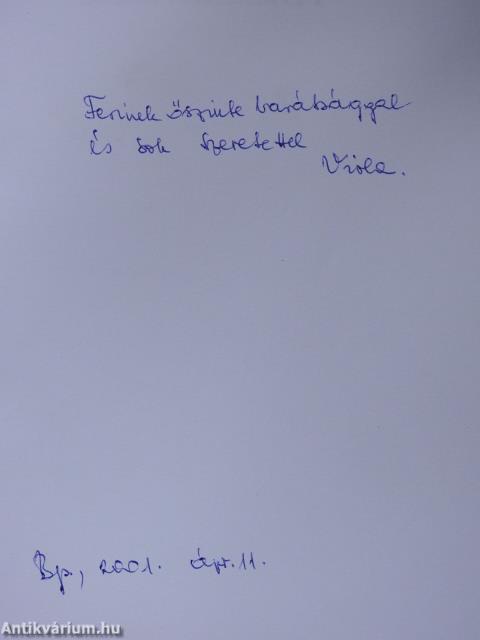 Ferinek őszinte barátsággal
és sok szeretettel
Viola.
Bp, 2001. ápr. 11.
Antikvárium.hu